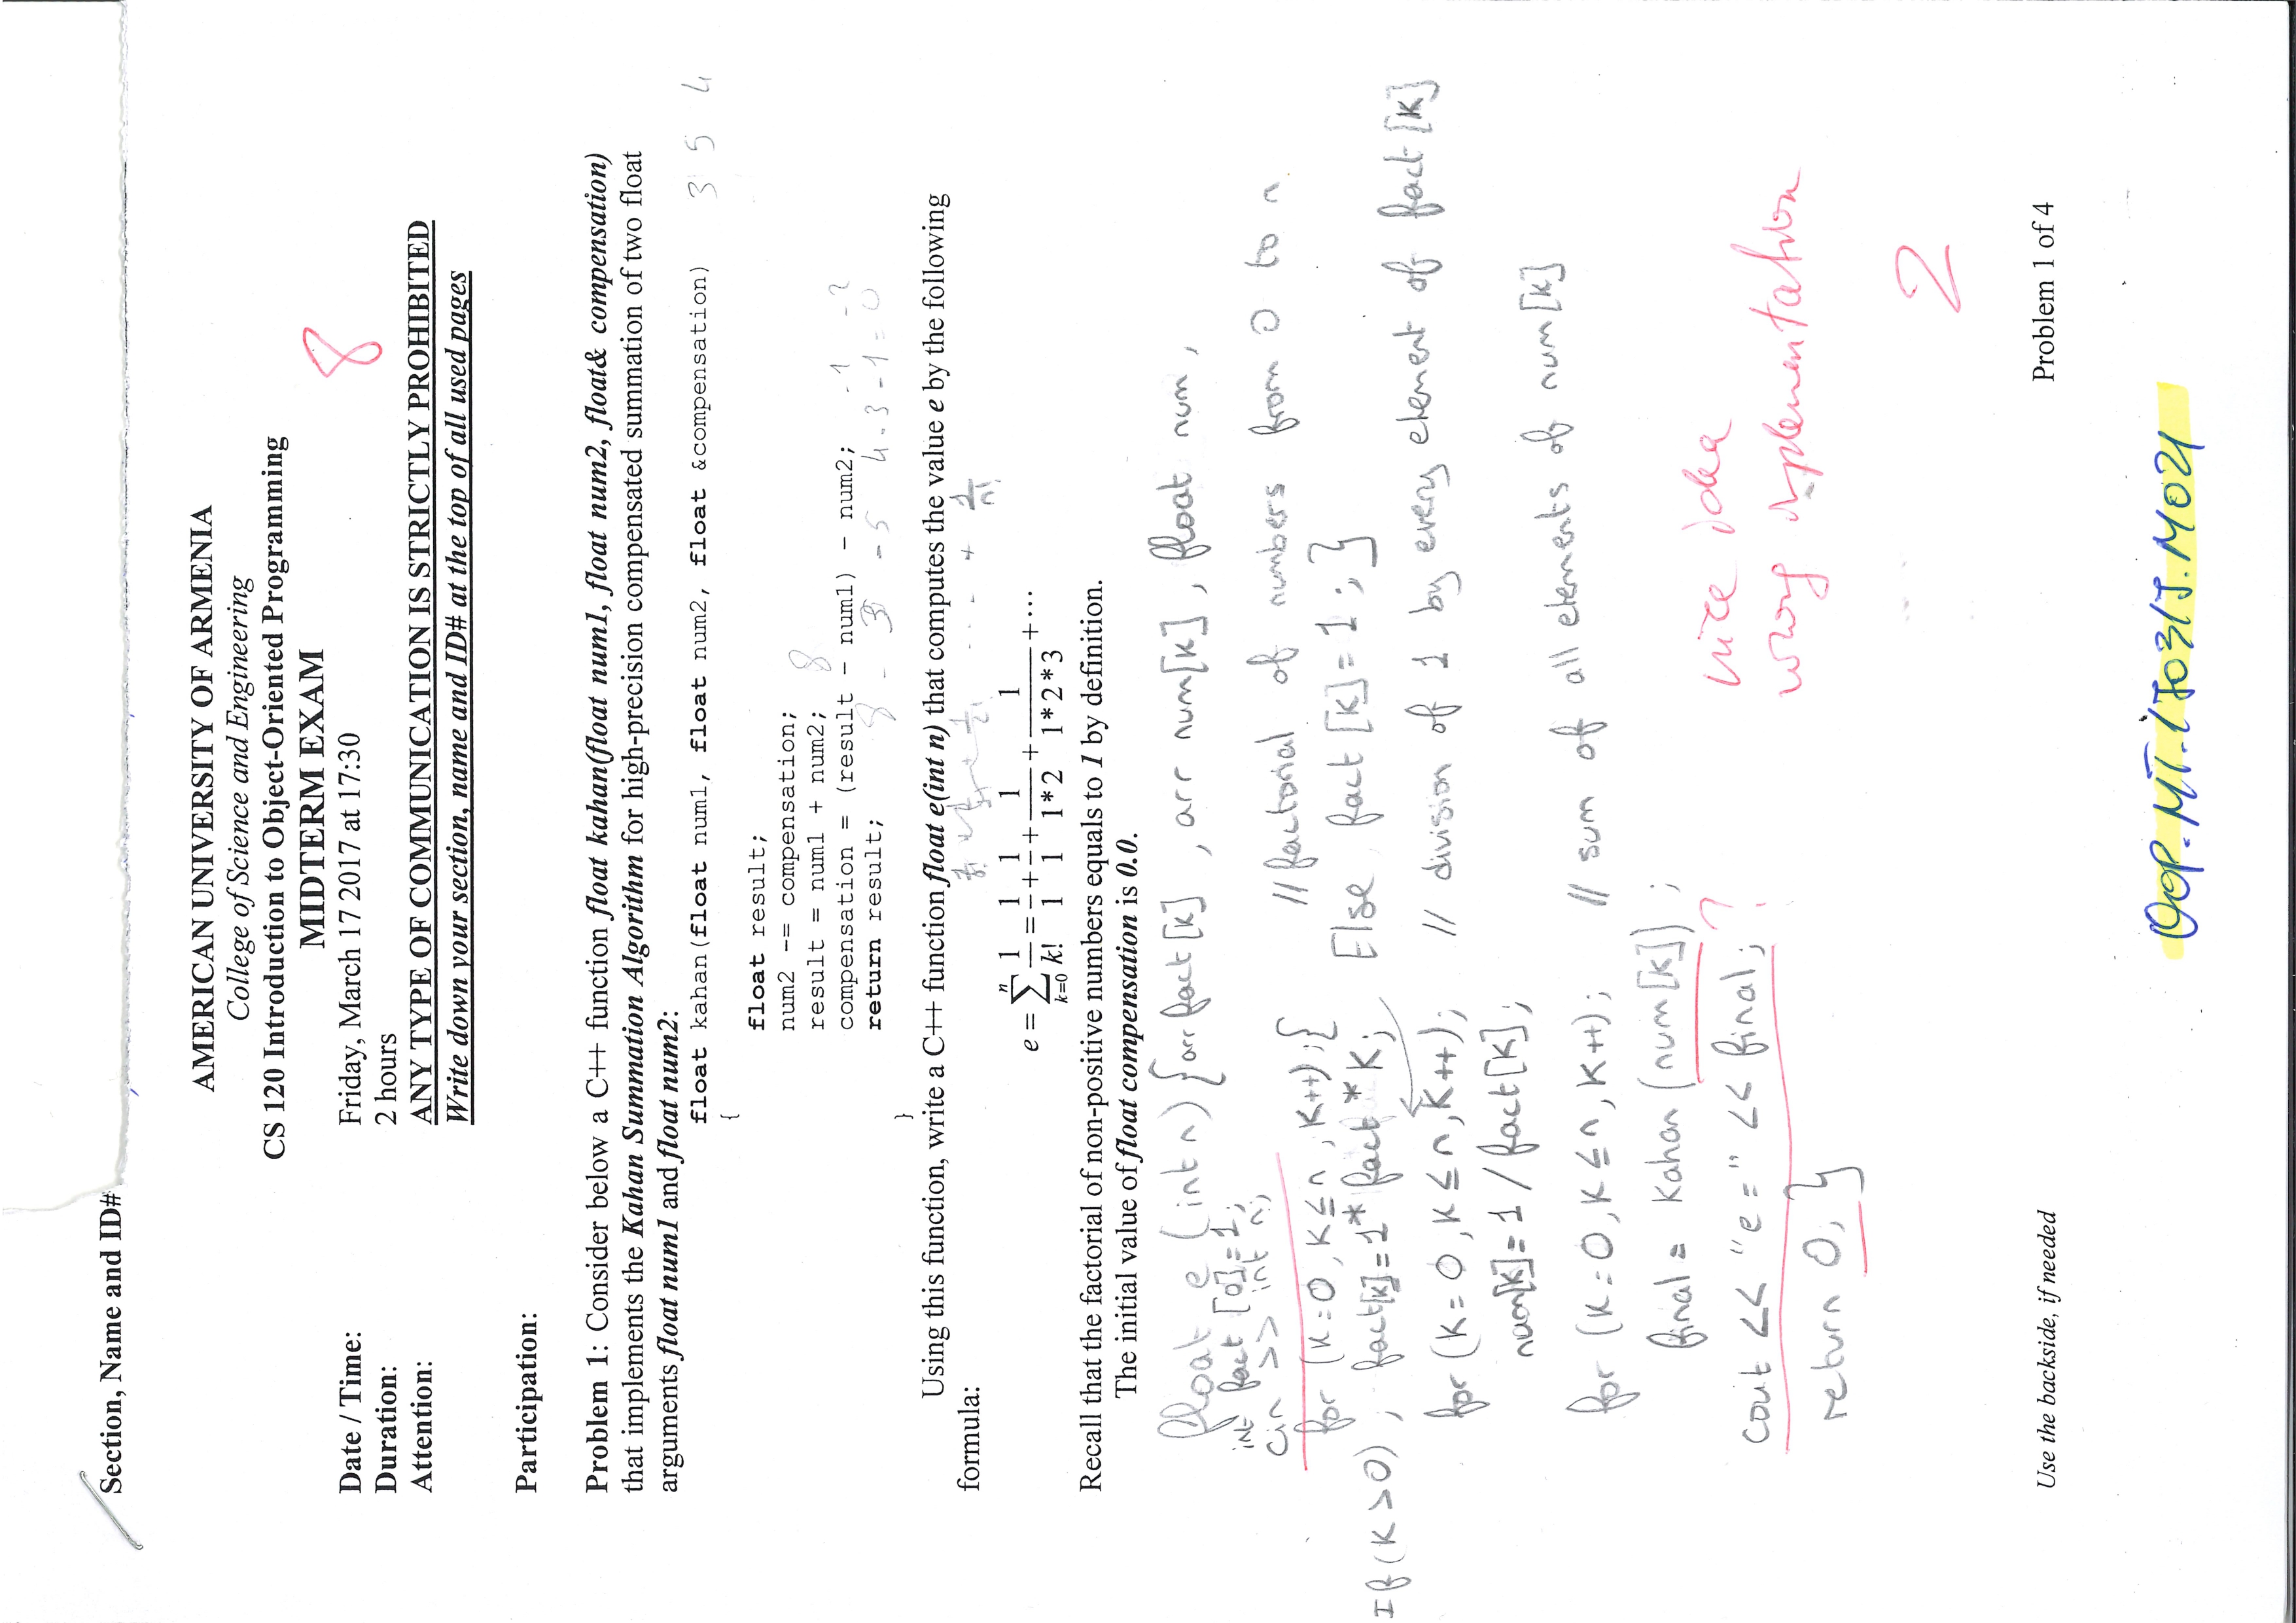 Section, Name and ID#
AMERICAN UNIVERSITY OF ARMENIA
College of Science and Engineering
CS 120 Introduction to Object-Oriented Programming
MIDTERM EXAM
8
Date / Time: Friday, March 17 2017 at 17:30
Duration: 2 hours
Attention: ANY TYPE OF COMMUNICATION IS STRICTLY PROHIBITED
Write down your section, name and ID# at the top of all used pages
Participation:
Problem 1: Consider below a C++ function float kahan(float num1, float num2, float& compensation)
that implements the Kahan Summation Algorithm for high-precision compensated summation of two float
arguments float num1 and float num2:
float kahan(float num1, float num2, float &compensation) 3 5 4
{
float result;
num2 -= compensation;
result = num1 + num2; 8
compensation = (result - num1) - num2; -1 -2
return result; 8 - 3 - 5 4-3-1=0
}
Using this function, write a C++ function float e(int n) that computes the value e by the following
formula:
+ 1/2! ---- + 1/n!
e = ∑ⁿₖ₌₀ 1/k! = 1/1 + 1/1 + 1/1*2 + 1/1*2*3 + ···
Recall that the factorial of non-positive numbers equals to 1 by definition.
The initial value of float compensation is 0.0.
float e (int n) { arr fact [k] , arr num[k] , float num ,
int fact [0]=1;
cin >> int n;
for (k=0, k≤n, k++);{ // factorial of numbers from 0 to n
If (k>0) ; fact[k]=1* fact *k; Else fact [k]=1 ; }
for (k=0, k≤n, k++); // division of 1 by every element of fact [k]
num[k]=1 / fact[k];
for (k=0, k≤n, k++); // sum of all elements of num[k]
final = kahan (num[k]) ;
cout << "e=" << final; ?
nice idea
wrong implementation
return 0; }
2
Use the backside, if needed Problem 1 of 4
OOP.MT.170317.M021